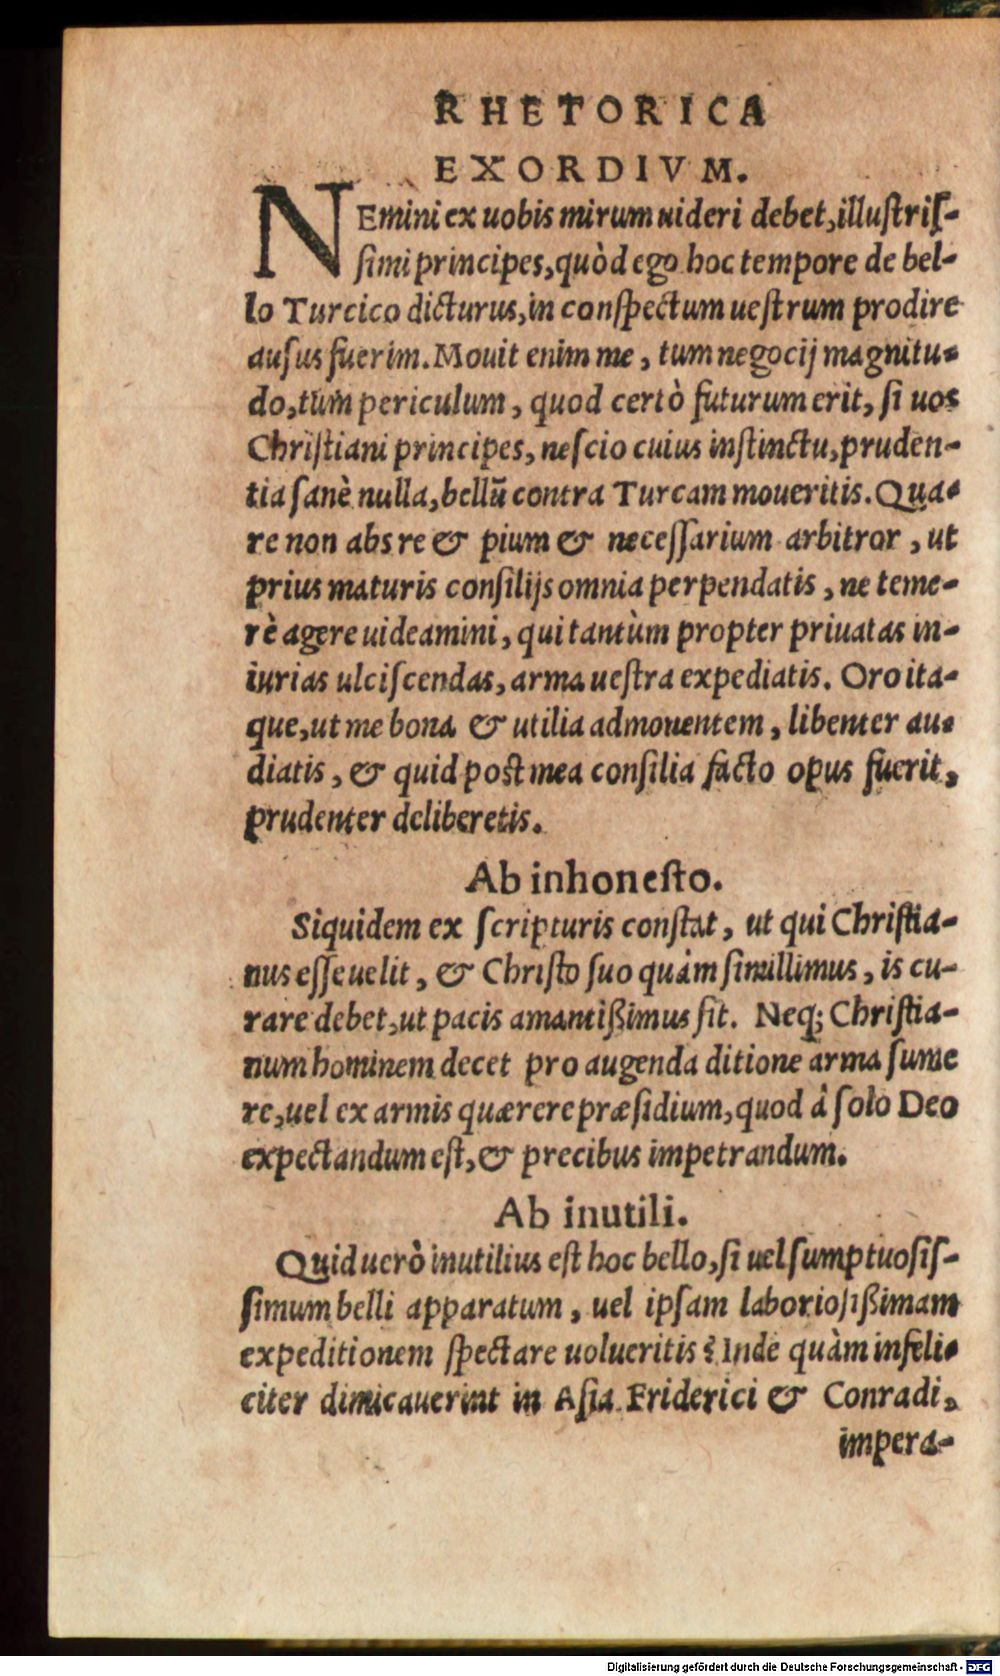 RHETORICA
EXORDIVM.
NEmini ex uobis mirum uideri debet, illuſtriſ-
ſimi principes, quòd ego hoc tempore de bel-
lo Turcico dicturus, in conſpectum ueſtrum prodire
auſus fuerim. Mouit enim me, tum negocij magnitu-
do, tum periculum, quod certò futurum erit, ſi uos
Chriſtiani principes, neſcio cuius inſtinctu, pruden-
tia ſanè nulla, bellū contra Turcam moueritis. Qua-
re non abs re & pium & neceſſarium arbitror, ut
prius maturis conſilijs omnia perpendatis, ne teme-
rè agere uideamini, qui tantùm propter priuatas in-
iurias ulciſcendas, arma ueſtra expediatis. Oro ita-
que, ut me bona & utilia admonentem, libenter au-
diatis, & quid poſt mea conſilia facto opus fuerit,
prudenter deliberetis.
Ab inhoneſto.
Siquidem ex ſcripturis conſtat, ut qui Chriſtia-
nus eſſe uelit, & Chriſto ſuo quàm ſimillimus, is cu-
rare debet, ut pacis amantißimus ſit. Neq; Chriſtia-
num hominem decet pro augenda ditione arma ſume
re, uel ex armis quærere præſidium, quod à ſolo Deo
expectandum eſt, & precibus impetrandum.
Ab inutili.
Quid uerò inutilius eſt hoc bello, ſi uel ſumptuoſiſ-
ſimum belli apparatum, uel ipſam laborioſißimam
expeditionem ſpectare uolueritis? Inde quàm infeli-
citer dimicauerint in Aſia Friderici & Conradi,
impera-
Digitalisierung gefördert durch die Deutsche Forschungsgemeinschaft - DFG